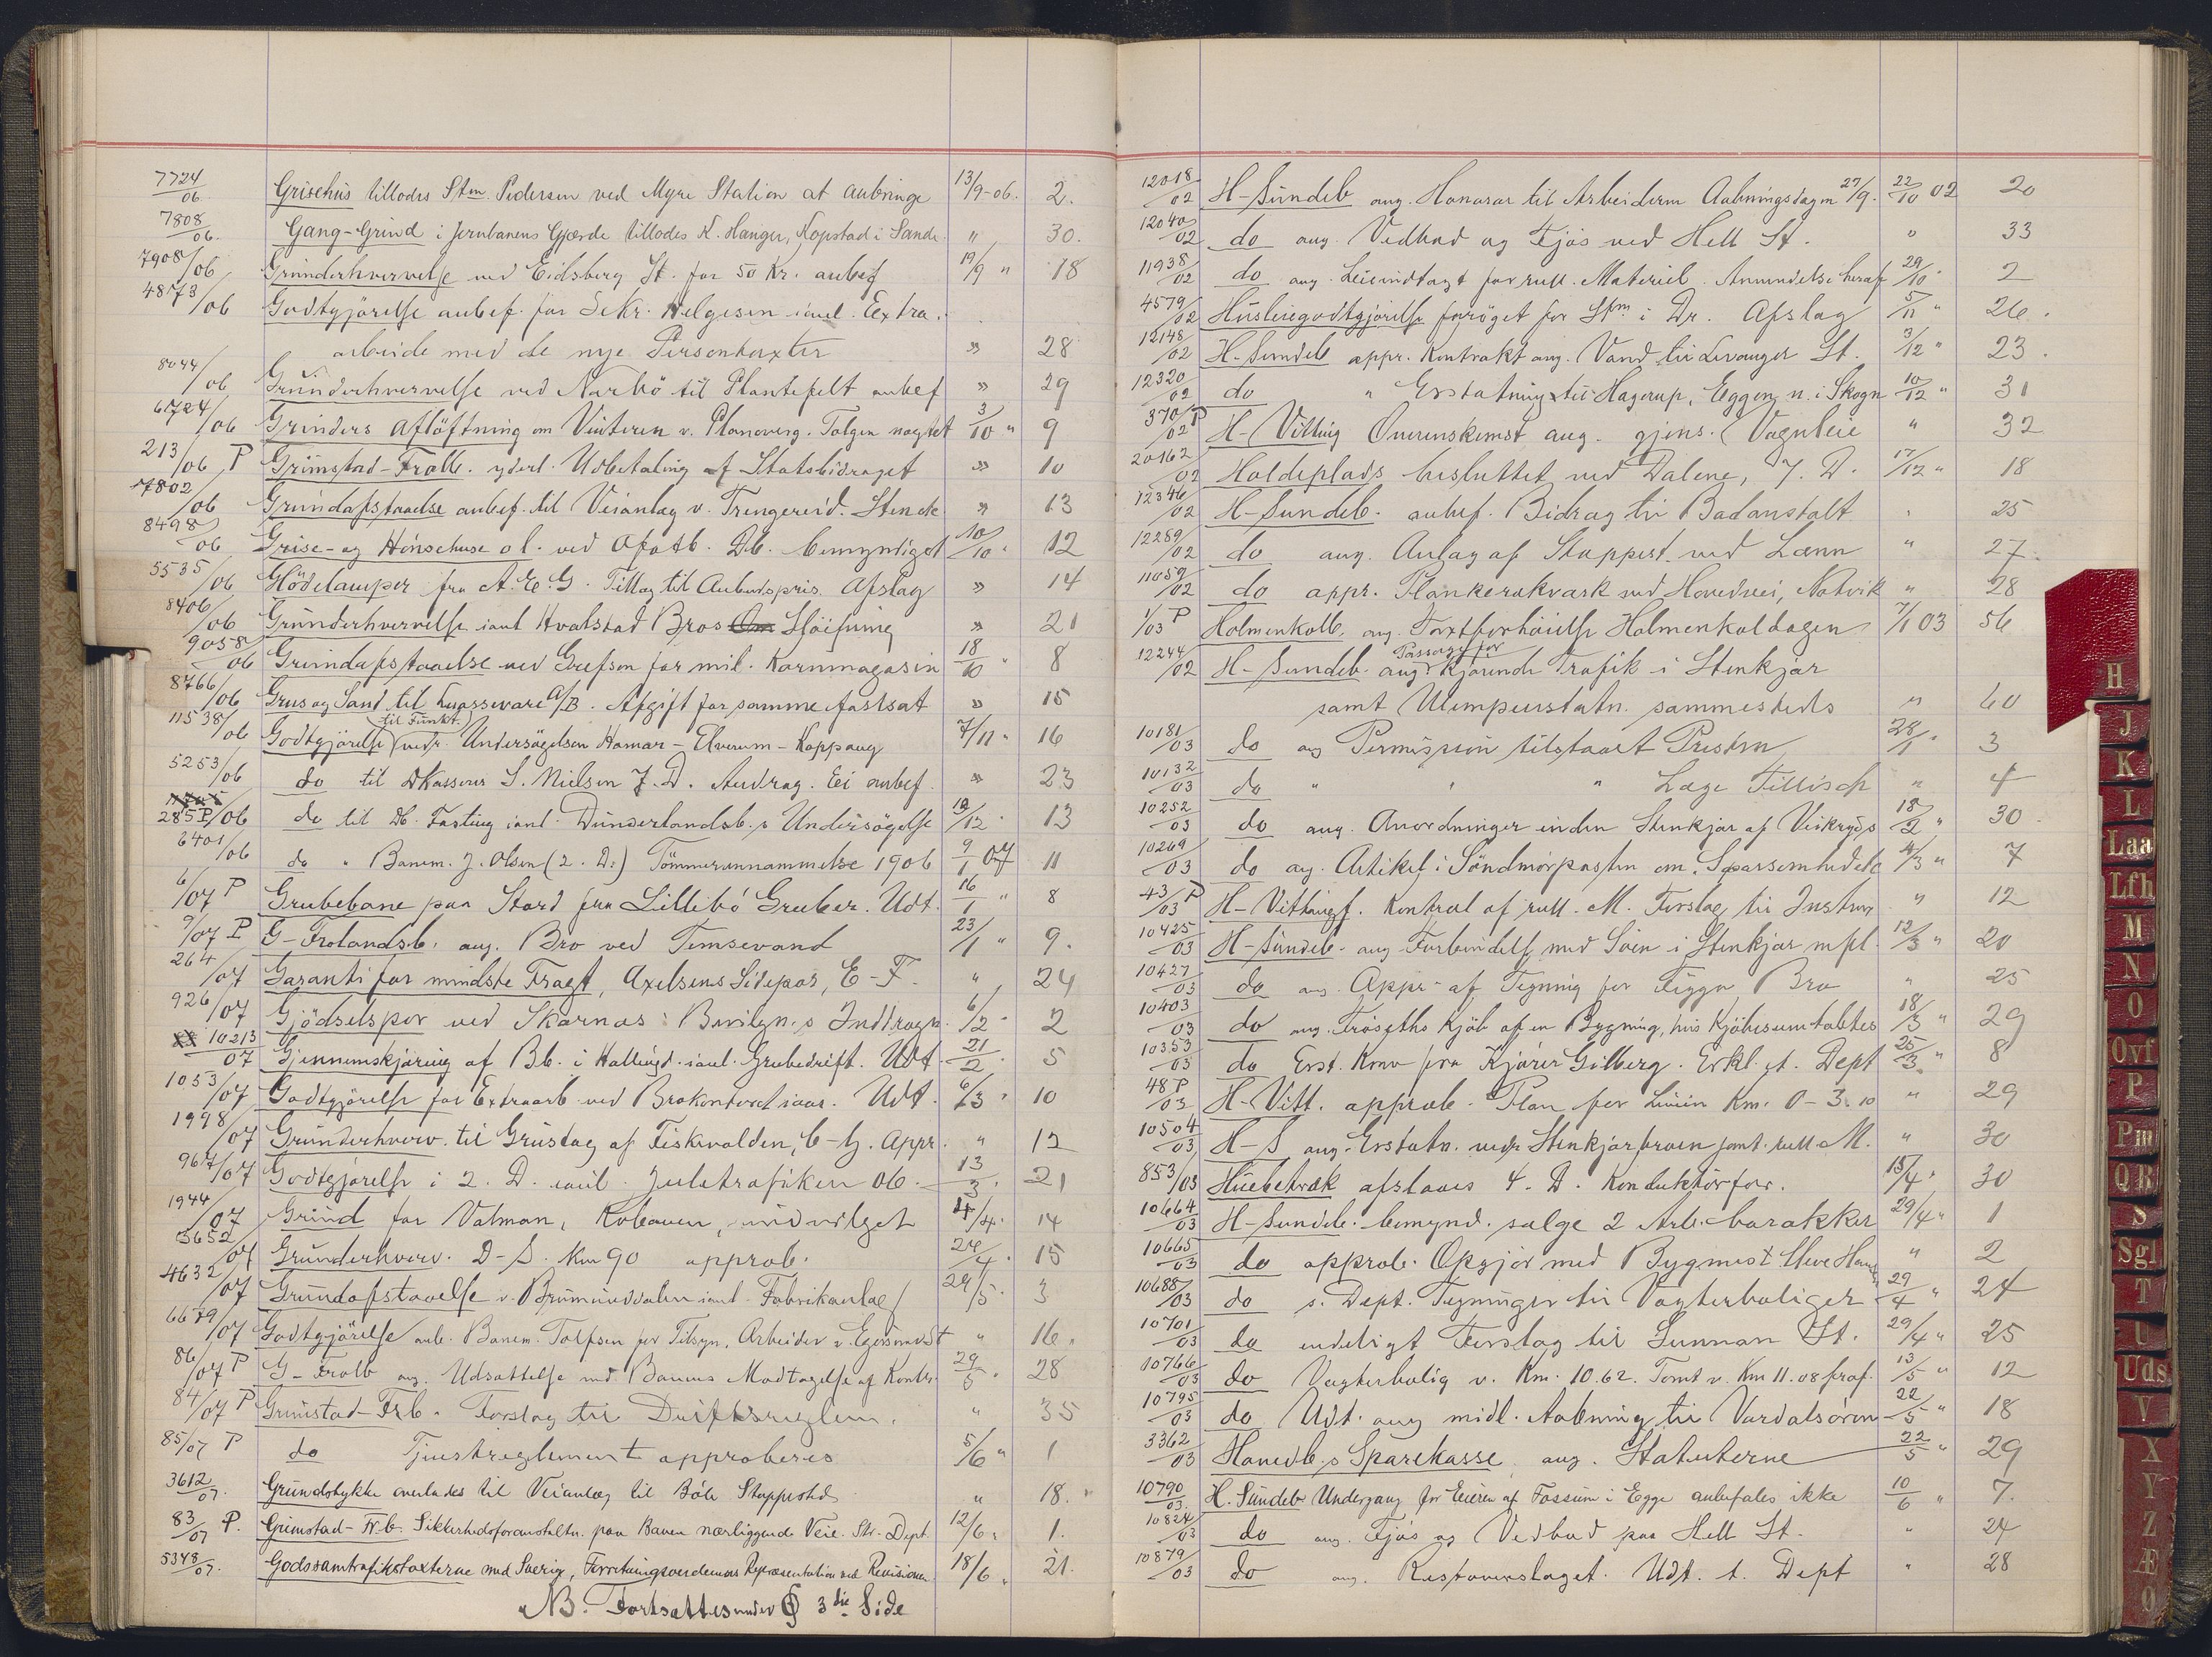 7724/06 Grisehus tillodes Stm. Pedersen ved Myre Station at anbringe 13/9-06. 2.
7808/06. Gang-Grind i Jernbanens Gjærde tillodes K. Hanger, Kopstad i Sande " 30.
7908/06 Grunderhvervelse ved Eidsberg St. for 50 Kr. anbef 19/9 " 18
4873/06 Godtgjörelse anbef. for Sekr. Helgesen i anl. Extra.
arbeide med de nye Persontaxter " 28
8044/06 Grunderhvervelse ved Narbö til Plantefelt anbef " 29
6724/06 Grinders Aflöftning om Vinteren v. Planoverg. Tolgen nægtet 3/10 " 9
213/06 P Grimstad-Frolb. yderl. Udbetaling af Statsbidraget " 10
7802/06 Grundafstaaelse anbef. til Veianlæg v. Trengereid. " 13
8498/06 Grise- og Hönsehuse ol. ved Ofotb. Db. bemyndiget 10/10 " 12
5535/06 Glödelamper fra A.E.G. Tillæg til Anbudspris. Afslag " 14
8406/06 Grunderhvervelse i anl Hvalstad Bros " 21
9058/06 Grundafstaaelse ved Grefsen for mil. Kornmagasin 18/10 " 8
8766/06 Grus og Sand til A/B. Afgift for samme fastsat " 15
11538/06 Godtgjörelse (til Funkt.) vedr. Undersögelsen Hamar-Elverum-Koppang 7/11 " 16
5253/06 do til DKasserer S. Nielsen 7. D. Andrag. Ei anbef. " 23
285 P/06 do til Db. Fasting i anl. Dunderlandsb.s Undersögelse 12/12 " 13
6401/06 do " Banem. J. Olsen (2. D.) Tömmerannammelse 1906 9/1 07 11
6/07 P Grubebane paa Stord fra Lillebö Gruber. Udt. 16/1 " 8
9/07 P G-Frolandsb. ang. Bro ved Temsevand 23/1 " 9.
264/07 Garanti for mindste Fragt, Axelsens Sidespor, E-F. " 24
926/07 Gjödselspor ved Skarnæs: 6/2 " 2
10213/07 Gjennemskjæring af Bb. i Hallingd. i anl. Grubedrift. Udt. 21/2 " 5
1053/07 Godtgjörelse for Extraarb. ved Brokontoret iaar. Udt. 6/3 " 10
1998/07 Grunderhverv. til Grustag af Fiskvolden, C-G. appr. " 12
967/07 Godtgjörelse i 2. D. i anl. Juletrafiken 06. 13/3 " 21
1944/07 Grind for Volman, 4/4 " 14
3652/07 Grunderhverv. D-S. Km 90 approb. 24/4 " 15
4632/07 Grundafstaaelse v. Brumunddalen i anl. Fabrikanlæg 29/5 " 3
6679/07 Godtgjörelse anb. Banem. Tolfsen for Tilsyn. Arbeider v. Egersund St " 16.
86/07 P G-Frolb ang. Udsættelse med Banens Modtagelse af Kontr. 29/5 " 28
84/07 P Grimstad-Frb. Forslag til Driftsreglem. " 35
85/07 P do Tjenstreglement approberes 5/6 " 1
3612/07. Grundstykke overlades til Veianlæg til Böle Stoppested " 18.
83/07 P. Grimstad-Fr.b. Sikkerhedsforanstaltn. paa Banen nærliggende Veie. Skr. Dept. 12/6 " 1.
5348/07. Godssamtrafikstaxterne med Sverige, Repræsentation ved Revisionen. 18/6 " 21.
NB. Fortsættes under G 3die Side
12018/02 H-Sundeb ang. Honorar til Arbeiderne Aabningsdagen 27/9. 22/10 02 20
12040/02 do ang. Vedbod og Fjös ved Hell St. " 33
11938/02 do ang. Leieindtægt for rull. Materiel. Anvendelse heraf 29/10 " 2
4579/02 Husleiegodtgjörelse foröget for Stm i Dr. Afslag 5/11 " 26.
12148/02 H-Sundeb appr. Kontrakt ang. Vand til Levanger St. 3/12 " 23.
12320/02 do " Erstatning til Hagerup, Eggen n. i Skogn 10/12 " 31
370 P/02 H-Vitting Overenskomst ang. gjens. Vognleie " 32
20162/02 Holdeplads besluttet ved Dalene, 7. D. 17/12 " 18
12346/02 H-Sundeb. anbef. Bidrag til Badanstalt " 25
12289/02 do ang. Anlæg af Stoppest. ved Lænn " 27.
11059/02 do appr. Plankerækværk ved Hovedvei, Natvik " 28
1/03 P Holmenkolb. ang. Taxtforhöielse Holmenkoldagen 7/1 03 56
12244/02 H-Sundeb. ang. Passage for Kjörende Trafik i Stenkjær
samt Ulempeerstatn. sammesteds " 60
10181/03 do ang Permission tilstaaet Presten 28/1 " 3
10132/03 do " " " Læge Tillisch " 4
10252/03 do ang. Anordninger inden Stenkjær af Veikryds 18/2 " 30
10269/03 do ang. Artikel i Söndmörposten om Sparsomhed etc 4/3 " 7
43/03 P H-Vittingf. Kontrol af rull. M. Forslag til Instrux " 12
10425/03 H-Sundeb. ang Forbindelse med Söen i Stenkjær mfl. 12/3 " 20
10427/03 do ang. Appr. af Tegning for Figga Bro " 25
10403/03 do ang. Fröseths Kjöb af en Bygning, hvis Kjöbesum tabtes 18/3 " 29
10353/03 do Erst. Krav fra Kjörer Gilberg. Erkl. t. Dept 25/3 " 8
48 P/03 H-Vitt. approb. Plan for Linien Km. 0-3.10 " 29
10504/03 H-S ang. Erstatn. vedr Stenkjærbroen samt. rull M. " 30
853/03 Huebetræk afslaaes 4. D. Konduktörfor. 15/4 " 30
10664/03 H-Sundeb. bemynd. sælge 2 Arb.-barakker 29/4 " 1
10665/03 do approb. Opgjör med Bygmest. " 2
10688/03 do s. Dept. Tegninger til Vogterboliger 29/4 " 24
10701/03 do endeligt Forslag til Sunnan St. 29/4 " 25
10766/03 do Vogterbolig v. Km. 10.62. Tomt v. Km 11.08 præf. 13/5 " 12
10795/03 do Udt. ang midl. Aabning til Værdalsören 22/5 " 18
3362/03 Hovedb.s Sparekasse ang. Statuterne 22/5 " 29
10790/03. H. Sundeb Undergang for Eieren af Fossum i Egge anbefales ikke 10/6 " 7.
10824/03 do ang. Fjös og Vedbod paa Hell St. " 24
10879/03 do ang. Udt. t. Dept " 28
H
J
K
L
Laa
Lfh
M
N
O
Ovf
P
Pm
QR
S
Sgl
T
U
Uds
V
X
Y
Z
Æ
Ø